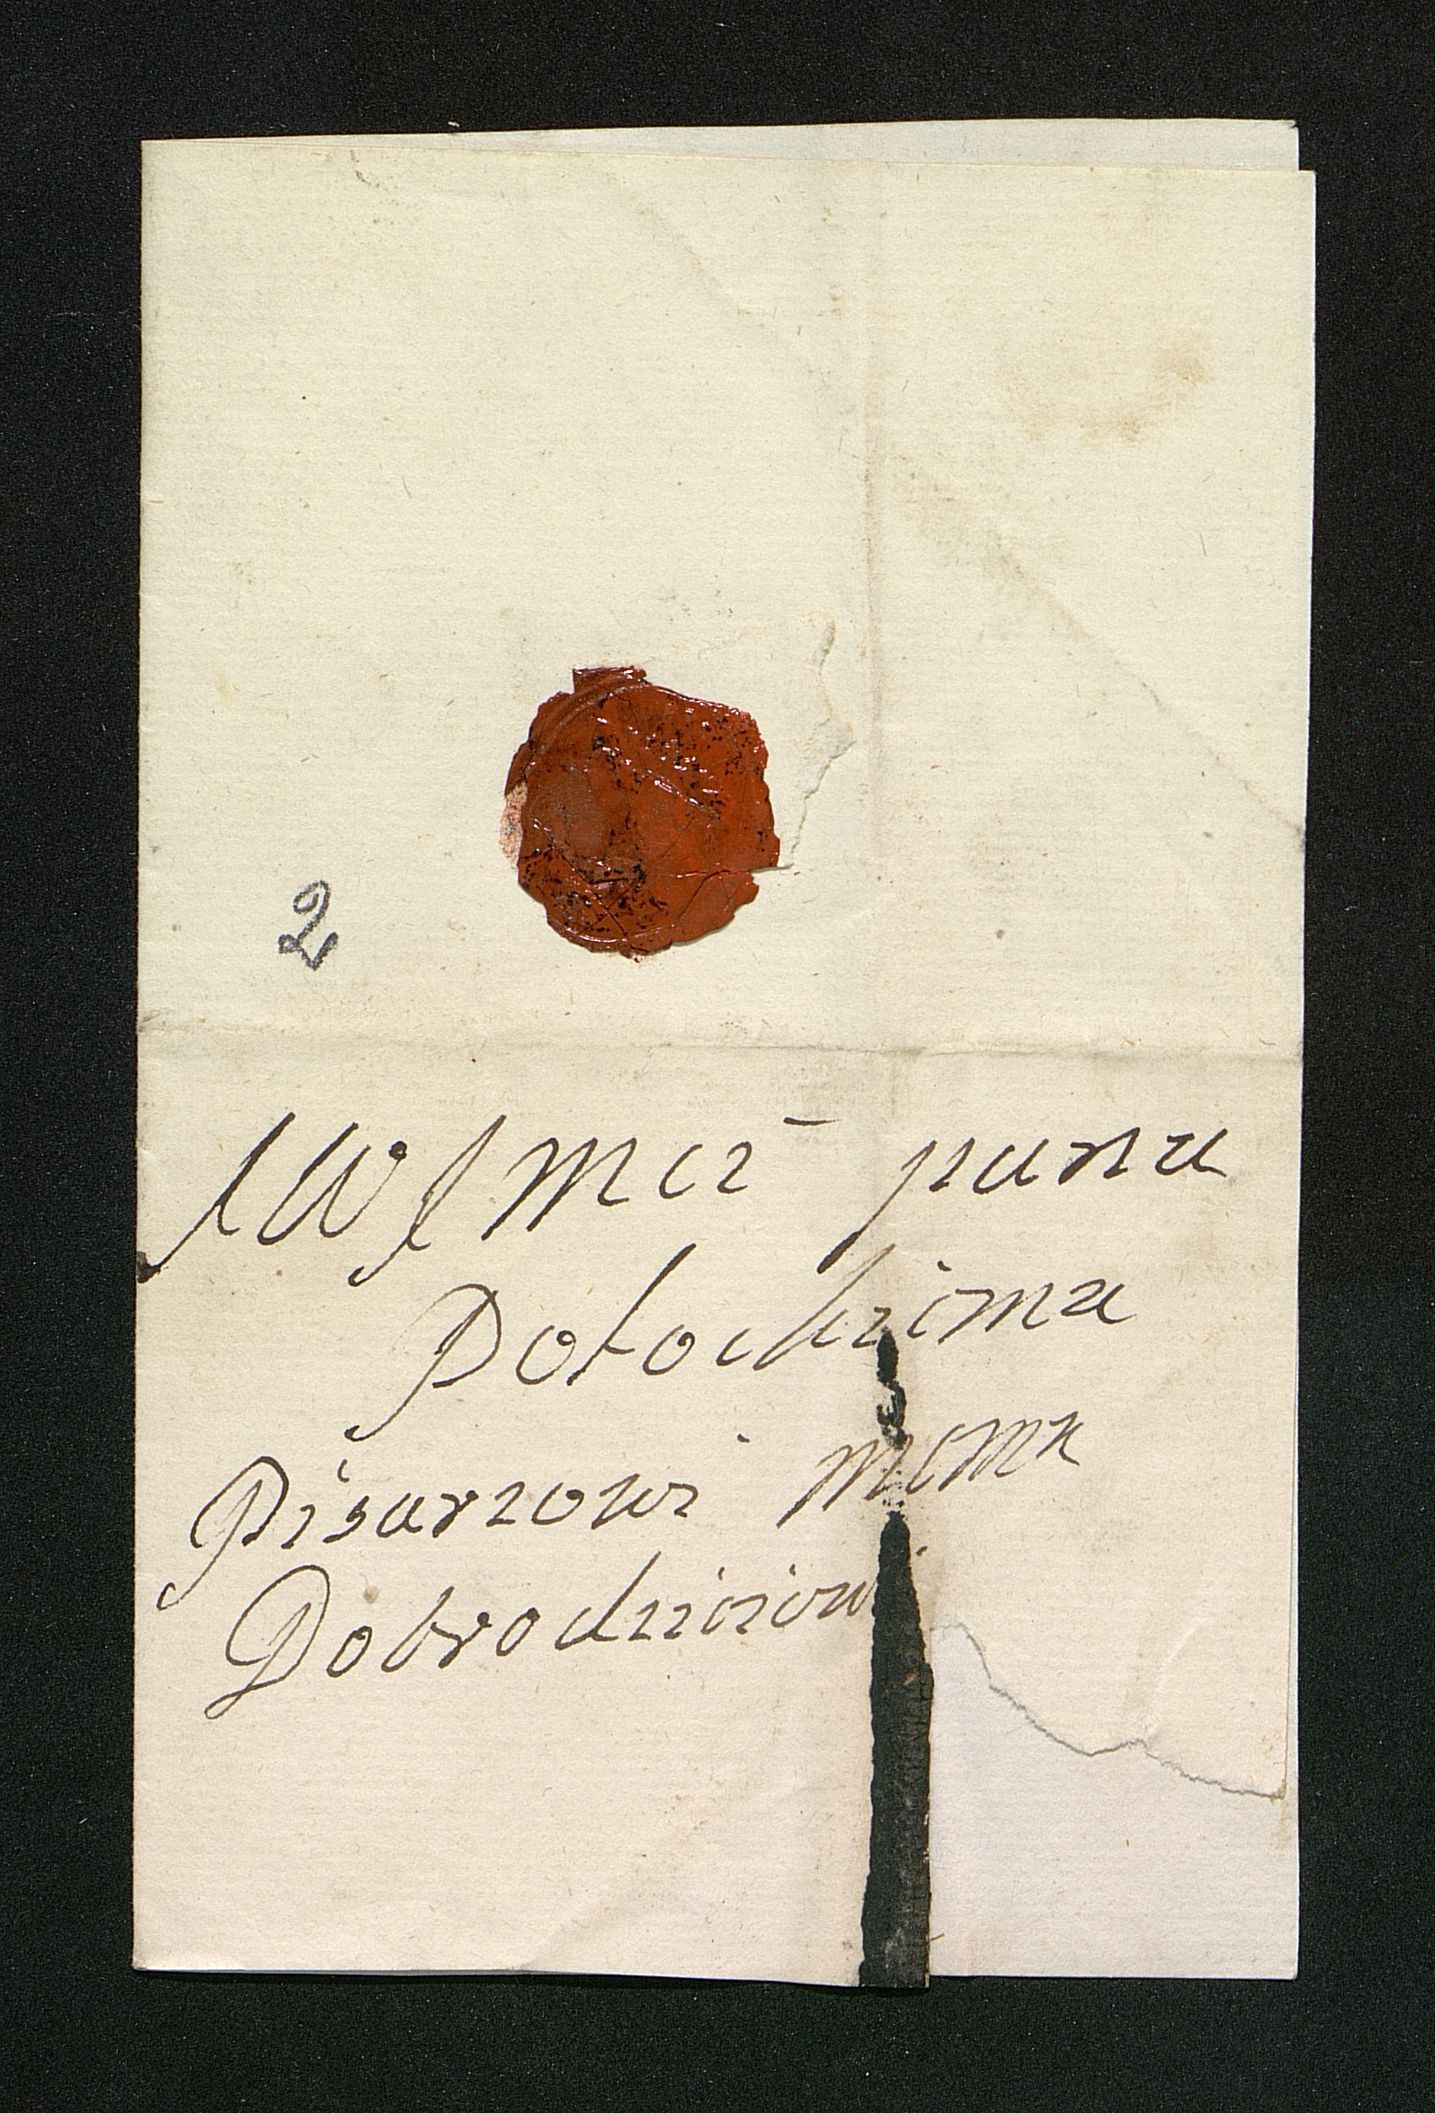 2
JWJMci pana
Potockiemu
Pisarzowi memu
Dobrodzieiowi